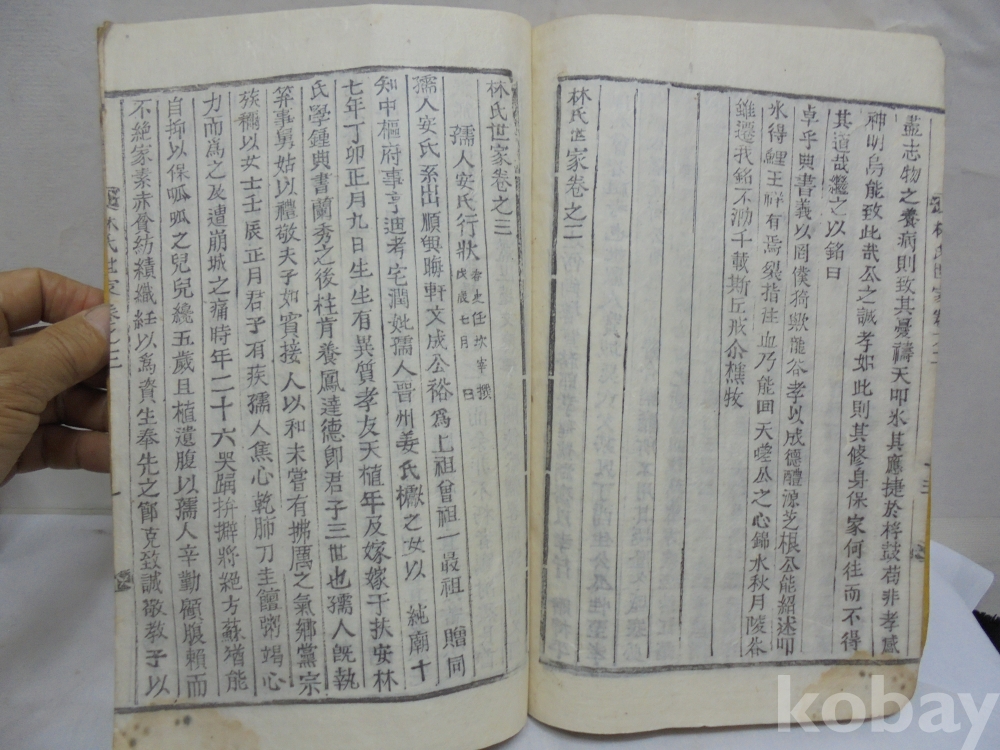 盡志物之養病則致其憂禱天叩氷其應捷於桴鼓苟非孝感
神明烏能致此哉公之誠孝如此則其修身保家何往而不得
其道哉繼之以銘曰
卓乎典書義以罔僕猗歟龍谷孝以成德醴源芝根公能紹述叩
氷得鯉王祥有焉裂指注血乃能回天嗟公之心錦水秋月陵谷
雖遷我銘不泐千載斯丘戒余樵牧
林氏世家卷之二
林氏世家卷之三
孺人安氏行狀
戊戌七月 日
孺人安氏系出順興晦軒文成公裕爲上祖曾祖一最祖 贈同
知中樞府事亨迪考宅潤妣孺人晋州姜氏 之女以 純廟十
七年丁卯正月九日生生有異質孝友天植年及嫁嫁于扶安林
氏學鍾典書蘭秀之後柱肯養鳳達德卽君子三世也孺人旣執
笄事舅姑以禮敬夫子如賓接人以和未嘗有拂厲之氣鄕黨宗
族稱以女士壬辰正月君子有疾孺人焦心乾肺刀圭饘粥竭心
力而爲之及遭崩城之痛時年二十六哭踊拚擗將絕方蘇猶能
自抑以保呱呱之兒兒纔五歲且植遺腹以孺人辛勤顧腹賴而
不絕家素赤貧紡績織絍以爲資生奉先之節克致誠敬教子以
林氏世家卷之三
kobay